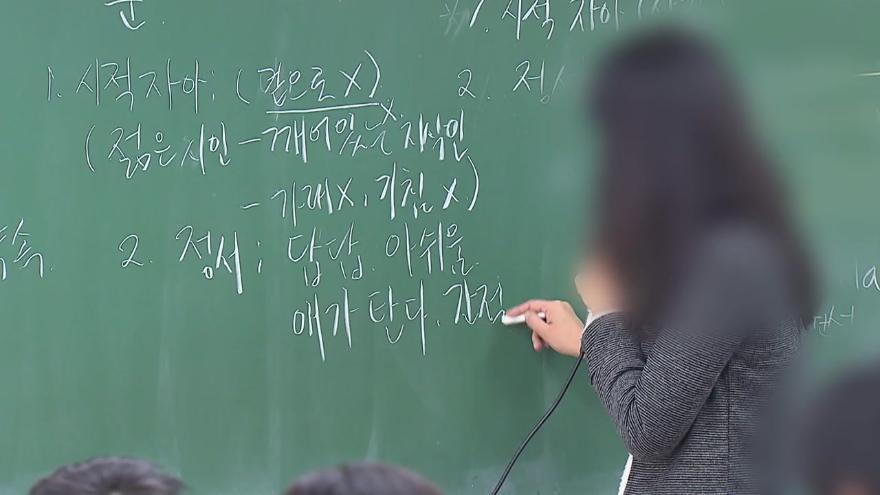 시적 자아
1. 시적자아; (겉으로 X)
2. 정
(젊은 시인 - 깨어있는 지식인
- 가래 X, 기침 X)
2. 정서; 답답. 아쉬움
애가 탄다. 간절